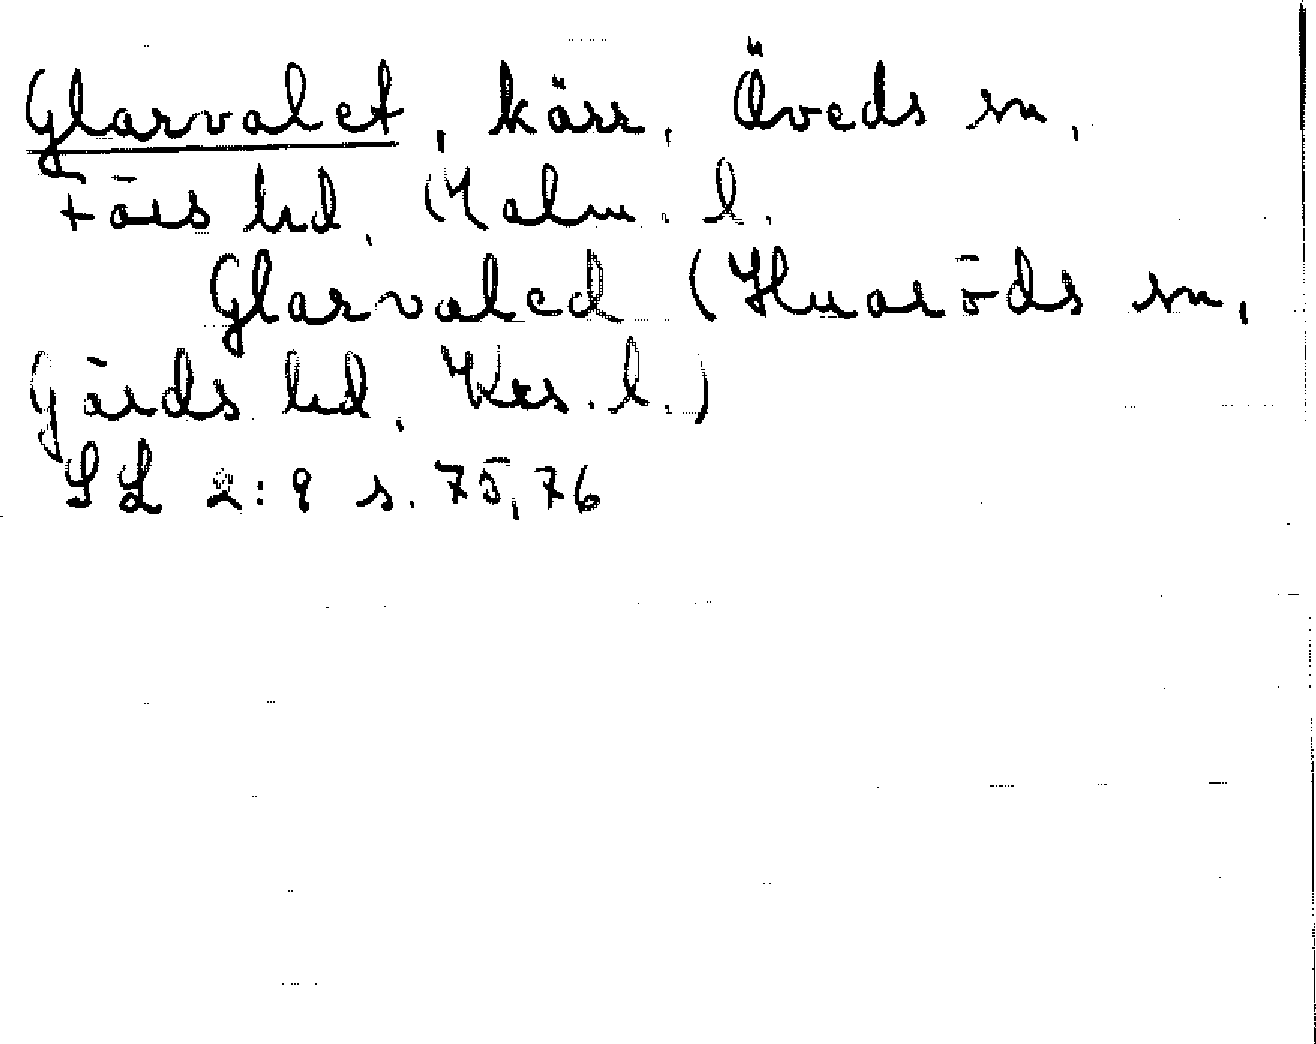 Glarvalet, kärr, Öveds sn,
Färs hd, Malm. l.
Glarvaled (Huaröds sn,
Gärds hd, Krs. l.)
SL 2:9 s. 75, 76